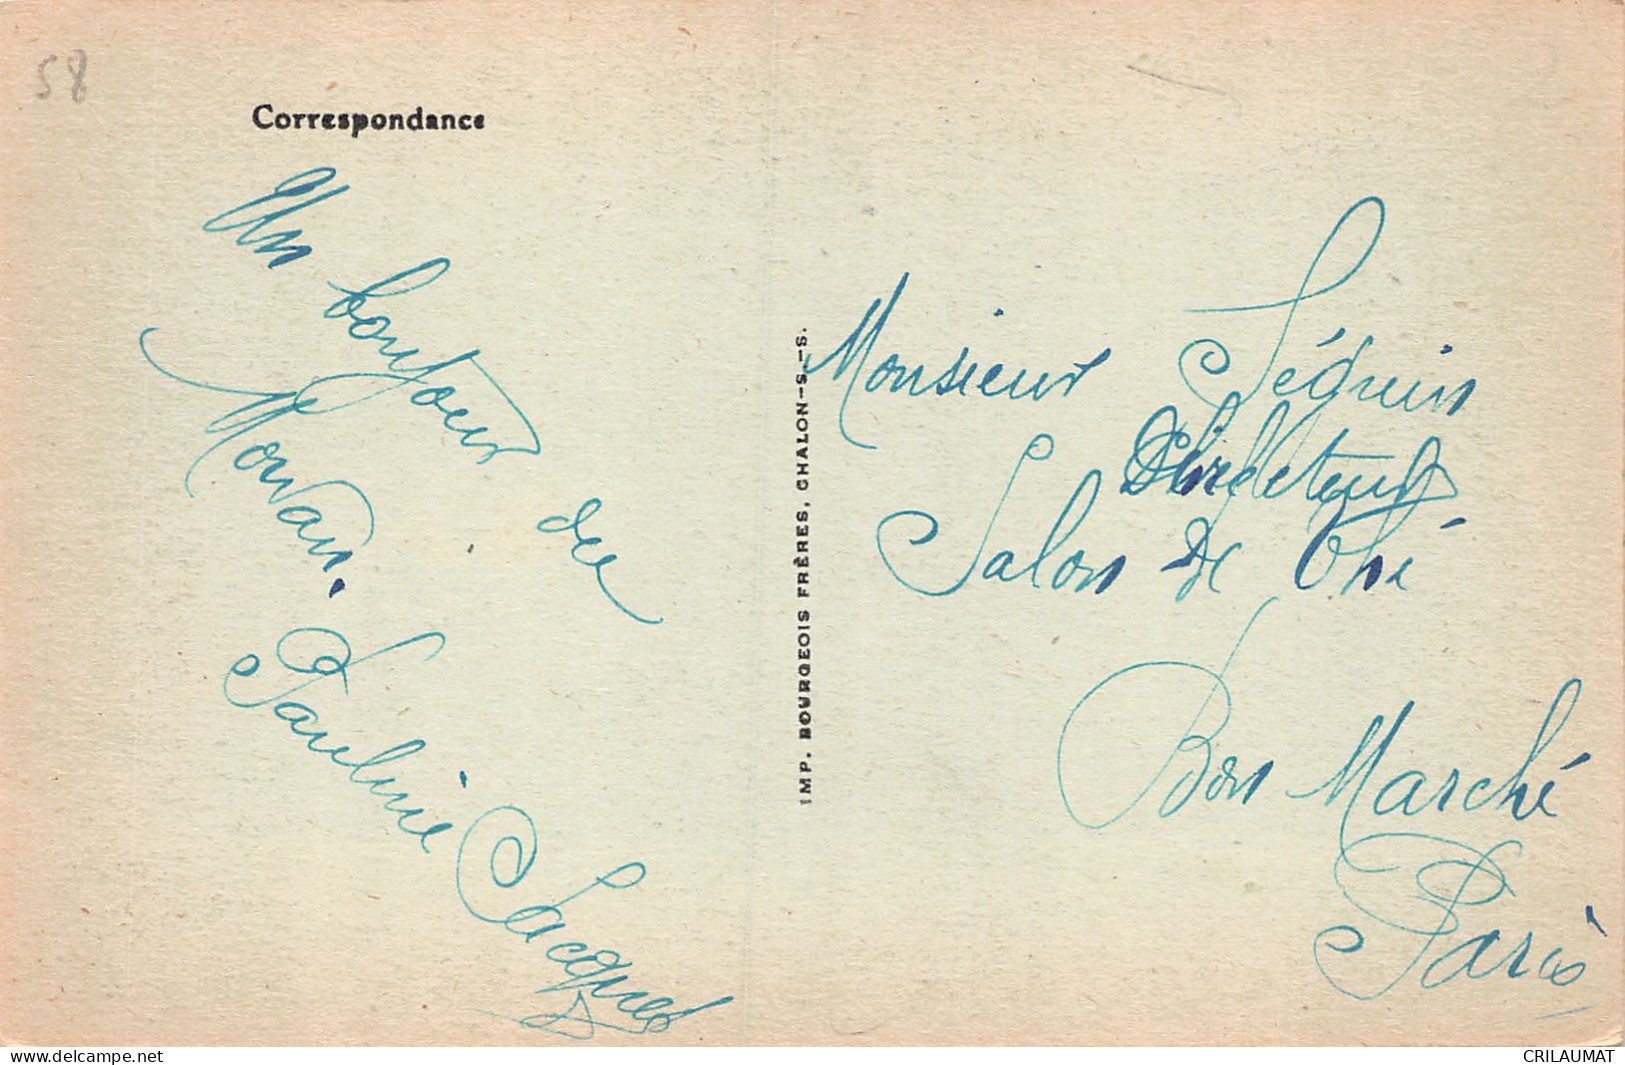 58
Correspondance
Un bonjour du
Morvan.
Pauline Jacques
IMP. BOURGEOIS FRÈRES, CHALON-S.-S.
Monsieur Séguin
Directeur
Salon de Thé
Bon Marché
Paris
www.delcampe.net
CRILAUMAT